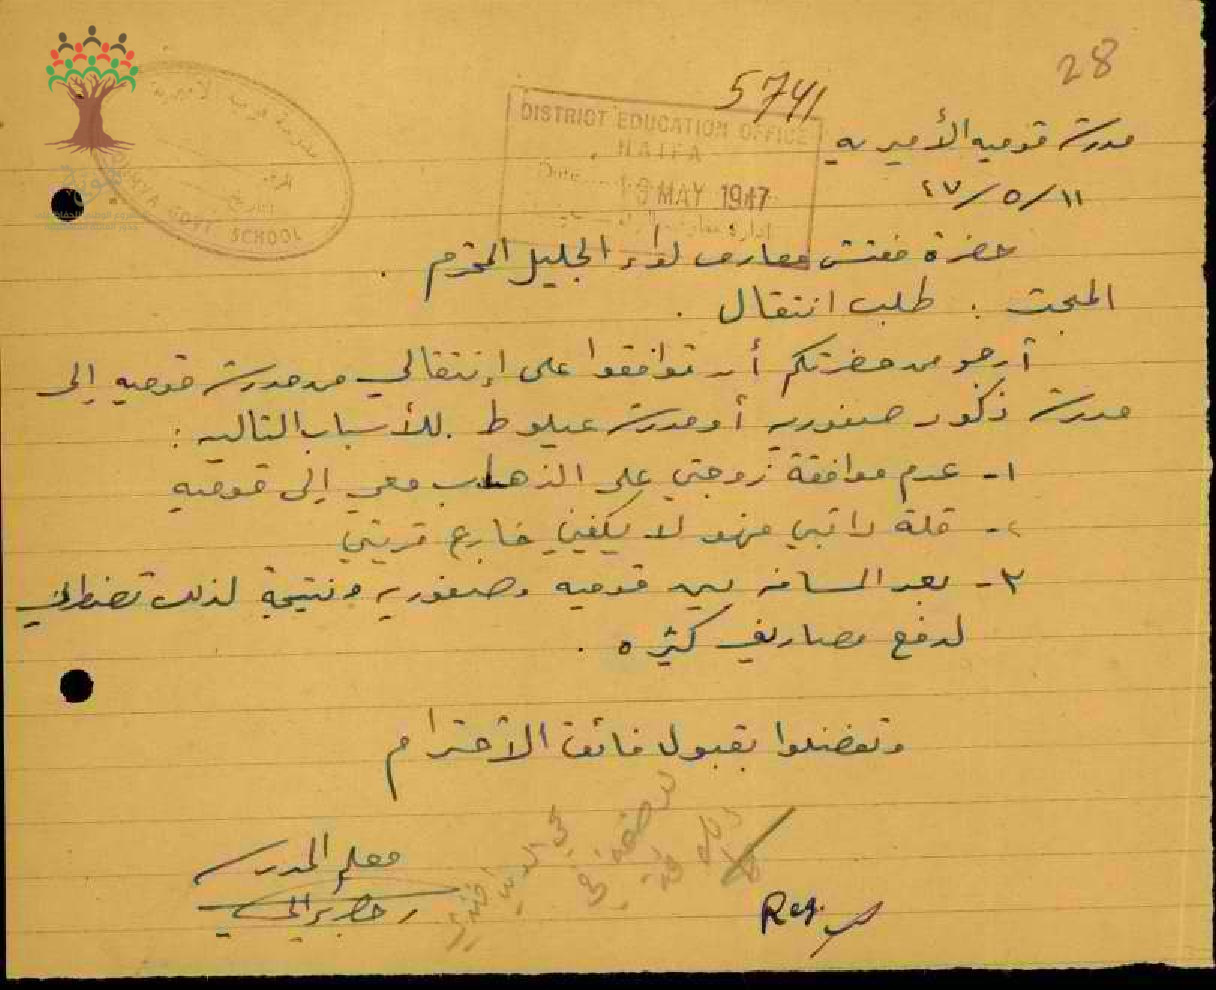 28
5741
DISTRICT EDUCATION OFFICE
HAIFA
Date 13 MAY 1947
GOVT SCHOOL
مدرسة قوميه الأميريه
١١/٥/٤٧
حضرة مفتش معارف لواء الجليل المحترم .
المبحث : طلب انتقال .
أرجو من حضرتكم أن توافقوا على إنتقالي من مدرسة قوميه إلى
مدرسة ذكور صفوريه أو مدرسة عيلوط للأسباب التاليه :
١- عدم موافقة زوجتي على الذهاب معي إلى قوميه
٢- قلة راتبي فهو لا يكفيني خارج قريتي
٣- بعد المسافه بين قوميه وصفوريه ونتيجة لذلك تضطرني
لدفع مصاريف كثيره .
وتفضلوا بقبول فائق الاحترام
معلم المدرسة
Reg.